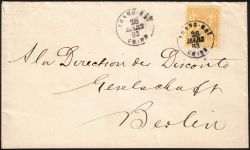 SHANG-HAI
28
MARS
83
CHINE
SHANG-HAI
28
MARS
83
CHINE
A la Direction der Disconto
Gesellschaft
Berlin